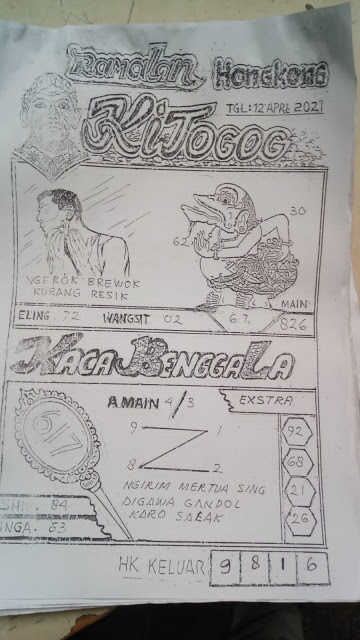 Ramalan Hongkong
TGL: 12 APRE 2021
Ki Togog
30
62
NGEROK BREWOK
KURANG RESIK
MAIN
ELING. 72 WANGSIT 02 6.7. 826
KACA BENGGALA
A MAIN 4/3 EXSTRA
9 1
8 2
617
92
68
21
26
NGIRIM MERTUA SING
DIGAWA GANDOL
KARO SALAK
SHIO. 84
NGA. 63
HK KELUAR 9 8 1 6